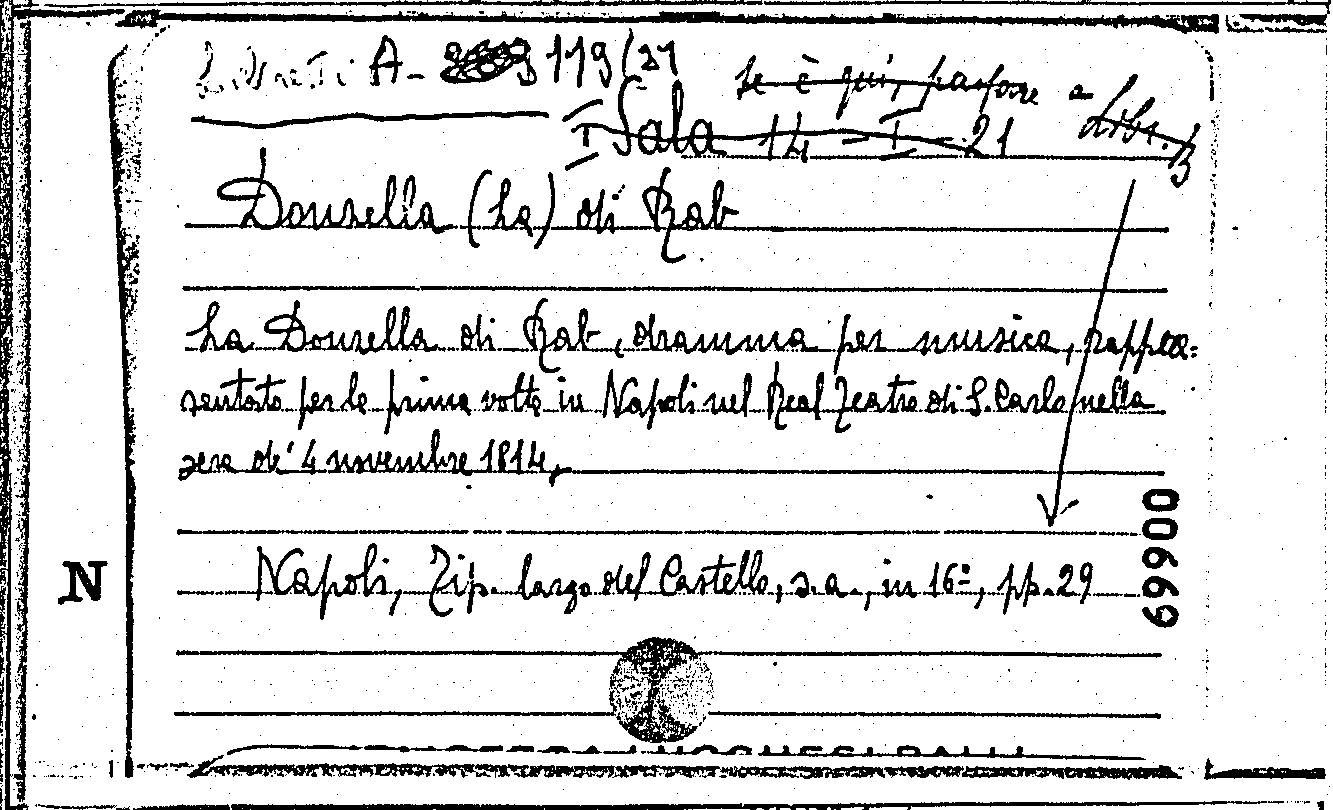 Libretti A- 119/21
se è qui, passare a Libr. B
I Sala 14 - I - 21
Donzella (La) di Rab
La Donzella di Rab, dramma per musica, rappre=
sentato per la prima volta in Napoli nel Real Teatro di S. Carlo nella
sera de' 4 novembre 1814,
Napoli, Tip. largo del Castello, s.a., in 16º, pp. 29
00669
N